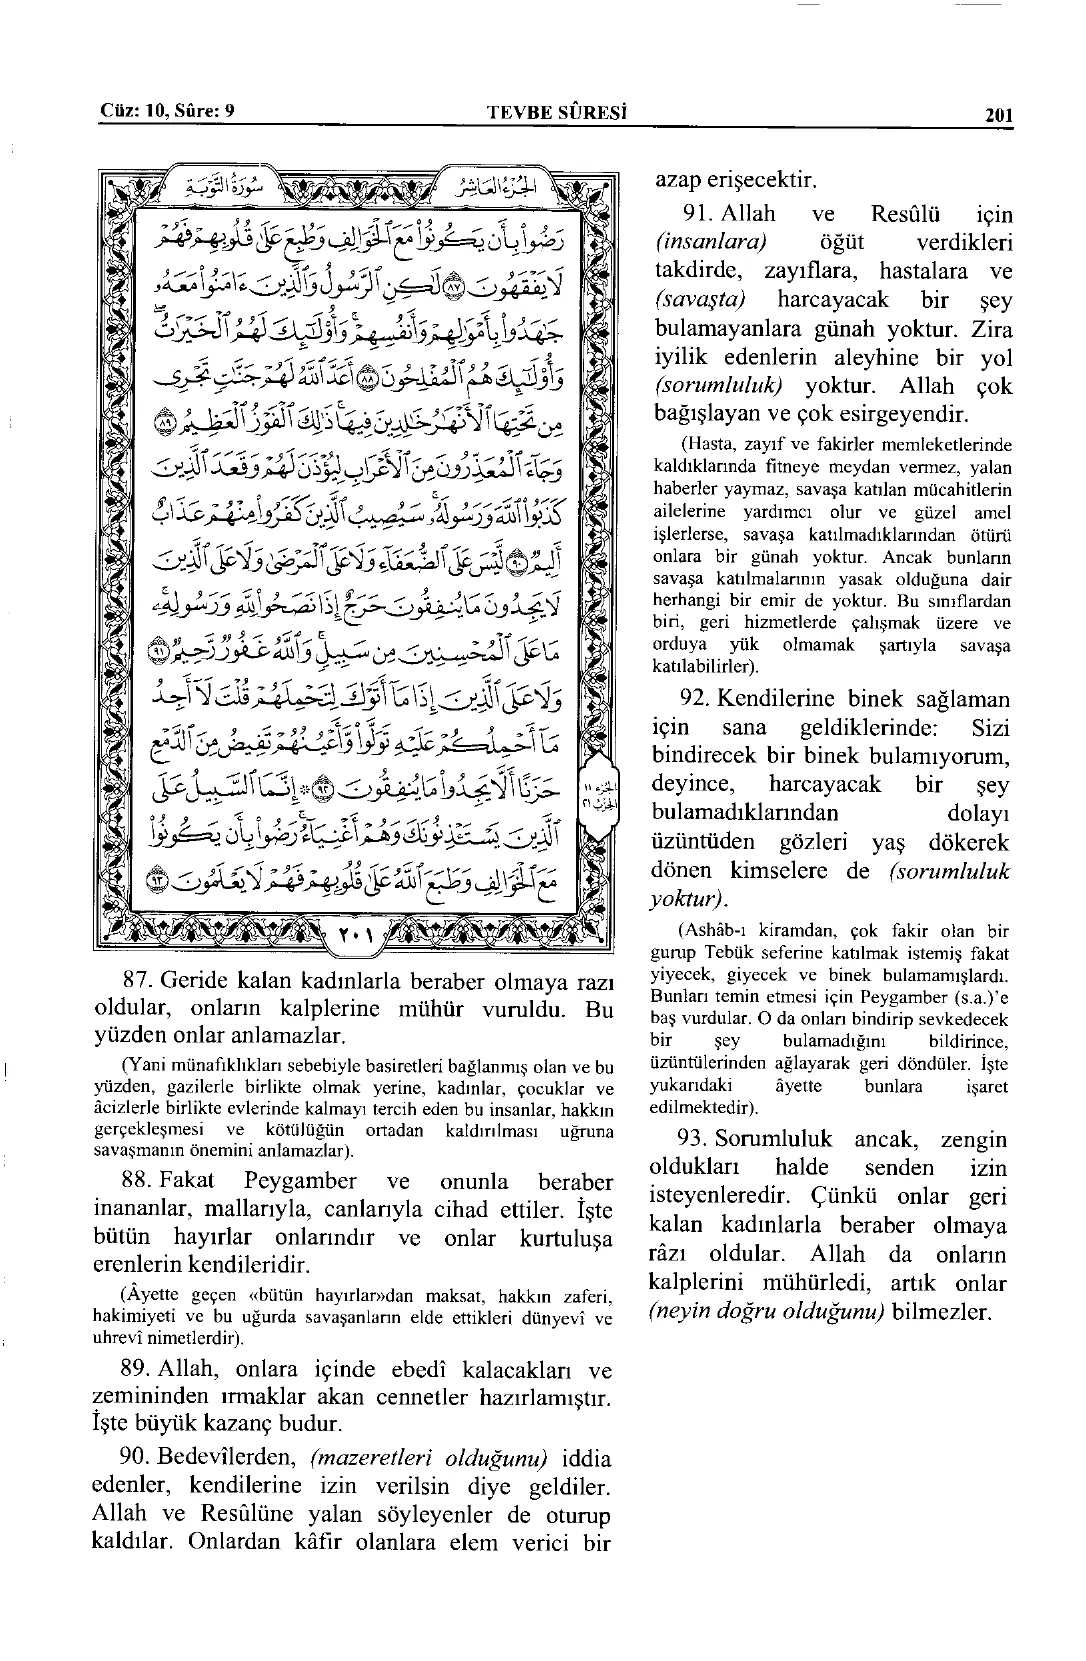 Cüz: 10, Sûre: 9 TEVBE SÛRESİ 201
سُورَةُ التَّوْبَةِ الجُزْءُ العَاشِرُ
رَضُوا۟ بِأَن يَكُونُوا۟ مَعَ ٱلْخَوَالِفِ وَطُبِعَ عَلَىٰ قُلُوبِهِمْ فَهُمْ
لَا يَفْقَهُونَ ٨٧ لَٰكِنِ ٱلرَّسُولُ وَٱلَّذِينَ ءَامَنُوا۟ مَعَهُۥ
جَٰهَدُوا۟ بِأَمْوَٰلِهِمْ وَأَنفُسِهِمْ وَأُو۟لَٰٓئِكَ لَهُمُ ٱلْخَيْرَٰتُ
وَأُو۟لَٰٓئِكَ هُمُ ٱلْمُفْلِحُونَ ٨٨ أَعَدَّ ٱللَّهُ لَهُمْ جَنَّٰتٍ تَجْرِى
مِن تَحْتِهَا ٱلْأَنْهَٰرُ خَٰلِدِينَ فِيهَا ذَٰلِكَ ٱلْفَوْزُ ٱلْعَظِيمُ ٨٩
وَجَآءَ ٱلْمُعَذِّرُونَ مِنَ ٱلْأَعْرَابِ لِيُؤْذَنَ لَهُمْ وَقَعَدَ ٱلَّذِينَ
كَذَبُوا۟ ٱللَّهَ وَرَسُولَهُۥ سَيُصِيبُ ٱلَّذِينَ كَفَرُوا۟ مِنْهُمْ عَذَابٌ
أَلِيمٌ ٩٠ لَّيْسَ عَلَى ٱلضُّعَفَآءِ وَلَا عَلَى ٱلْمَرْضَىٰ وَلَا عَلَى ٱلَّذِينَ
لَا يَجِدُونَ مَا يُنفِقُونَ حَرَجٌ إِذَا نَصَحُوا۟ لِلَّهِ وَرَسُولِهِۦ
مَا عَلَى ٱلْمُحْسِنِينَ مِن سَبِيلٍ وَٱللَّهُ غَفُورٌ رَّحِيمٌ ٩١
وَلَا عَلَى ٱلَّذِينَ إِذَا مَآ أَتَوْكَ لِتَحْمِلَهُمْ قُلْتَ لَآ أَجِدُ
مَآ أَحْمِلُكُمْ عَلَيْهِ تَوَلَّوا۟ وَّأَعْيُنُهُمْ تَفِيضُ مِنَ ٱلدَّمْعِ
حَزَنًا أَلَّا يَجِدُوا۟ مَا يُنفِقُونَ ٩٢ * إِنَّمَا ٱلسَّبِيلُ عَلَى
ٱلَّذِينَ يَسْتَـْٔذِنُونَكَ وَهُمْ أَغْنِيَآءُ رَضُوا۟ بِأَن يَكُونُوا۟
مَعَ ٱلْخَوَالِفِ وَطَبَعَ ٱللَّهُ عَلَىٰ قُلُوبِهِمْ فَهُمْ لَا يَعْلَمُونَ ٩٣
الجزء ١١
الحزب ٢١
٢٠١
87. Geride kalan kadınlarla beraber olmaya razı
oldular, onların kalplerine mühür vuruldu. Bu
yüzden onlar anlamazlar.
(Yani münafıklıkları sebebiyle basiretleri bağlanmış olan ve bu
yüzden, gazilerle birlikte olmak yerine, kadınlar, çocuklar ve
âcizlerle birlikte evlerinde kalmayı tercih eden bu insanlar, hakkın
gerçekleşmesi ve kötülüğün ortadan kaldırılması uğruna
savaşmanın önemini anlamazlar).
88. Fakat Peygamber ve onunla beraber
inananlar, mallarıyla, canlarıyla cihad ettiler. İşte
bütün hayırlar onlarındır ve onlar kurtuluşa
erenlerin kendileridir.
(Âyette geçen «bütün hayırlar»dan maksat, hakkın zaferi,
hakimiyeti ve bu uğurda savaşanların elde ettikleri dünyevî ve
uhrevî nimetlerdir).
89. Allah, onlara içinde ebedî kalacakları ve
zemininden ırmaklar akan cennetler hazırlamıştır.
İşte büyük kazanç budur.
90. Bedevîlerden, (mazeretleri olduğunu) iddia
edenler, kendilerine izin verilsin diye geldiler.
Allah ve Resûlüne yalan söyleyenler de oturup
kaldılar. Onlardan kâfir olanlara elem verici bir
azap erişecektir.
91. Allah ve Resûlü için
(insanlara) öğüt verdikleri
takdirde, zayıflara, hastalara ve
(savaşta) harcayacak bir şey
bulamayanlara günah yoktur. Zira
iyilik edenlerin aleyhine bir yol
(sorumluluk) yoktur. Allah çok
bağışlayan ve çok esirgeyendir.
(Hasta, zayıf ve fakirler memleketlerinde
kaldıklarında fitneye meydan vermez, yalan
haberler yaymaz, savaşa katılan mücahitlerin
ailelerine yardımcı olur ve güzel amel
işlerlerse, savaşa katılmadıklarından ötürü
onlara bir günah yoktur. Ancak bunların
savaşa katılmalarının yasak olduğuna dair
herhangi bir emir de yoktur. Bu sınıflardan
biri, geri hizmetlerde çalışmak üzere ve
orduya yük olmamak şartıyla savaşa
katılabilirler).
92. Kendilerine binek sağlaman
için sana geldiklerinde: Sizi
bindirecek bir binek bulamıyorum,
deyince, harcayacak bir şey
bulamadıklarından dolayı
üzüntüden gözleri yaş dökerek
dönen kimselere de (sorumluluk
yoktur).
(Ashâb-ı kiramdan, çok fakir olan bir
gurup Tebük seferine katılmak istemiş fakat
yiyecek, giyecek ve binek bulamamışlardı.
Bunları temin etmesi için Peygamber (s.a.)'e
baş vurdular. O da onları bindirip sevkedecek
bir şey bulamadığını bildirince,
üzüntülerinden ağlayarak geri döndüler. İşte
yukarıdaki âyette bunlara işaret
edilmektedir).
93. Sorumluluk ancak, zengin
oldukları halde senden izin
isteyenleredir. Çünkü onlar geri
kalan kadınlarla beraber olmaya
râzı oldular. Allah da onların
kalplerini mühürledi, artık onlar
(neyin doğru olduğunu) bilmezler.